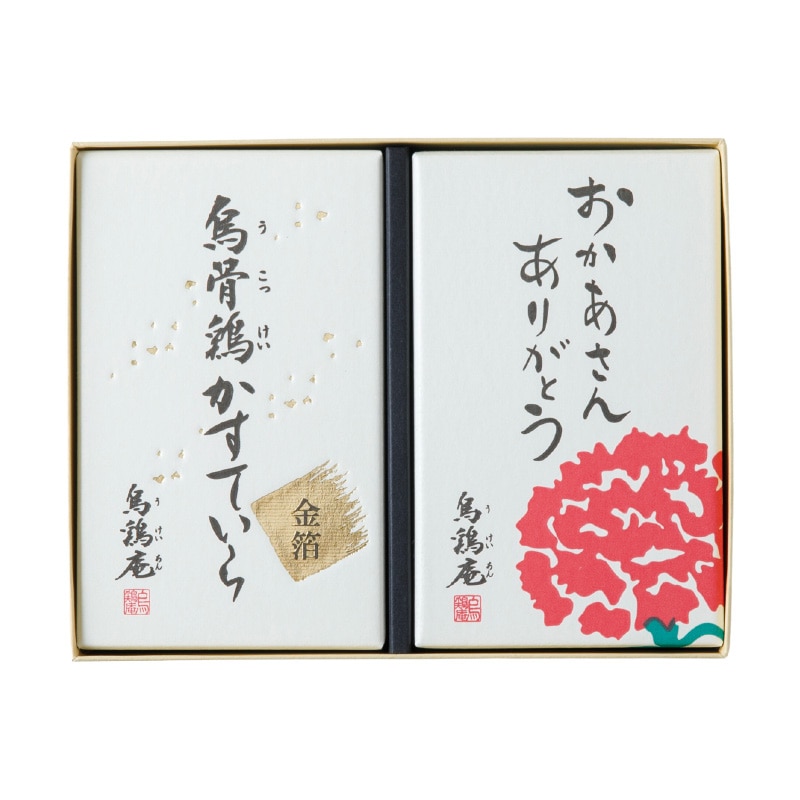 烏骨鶏かすていら
うこっけい
金箔
烏鶏庵
うけいあん
おかあさん
ありがとう
烏鶏庵
うけいあん